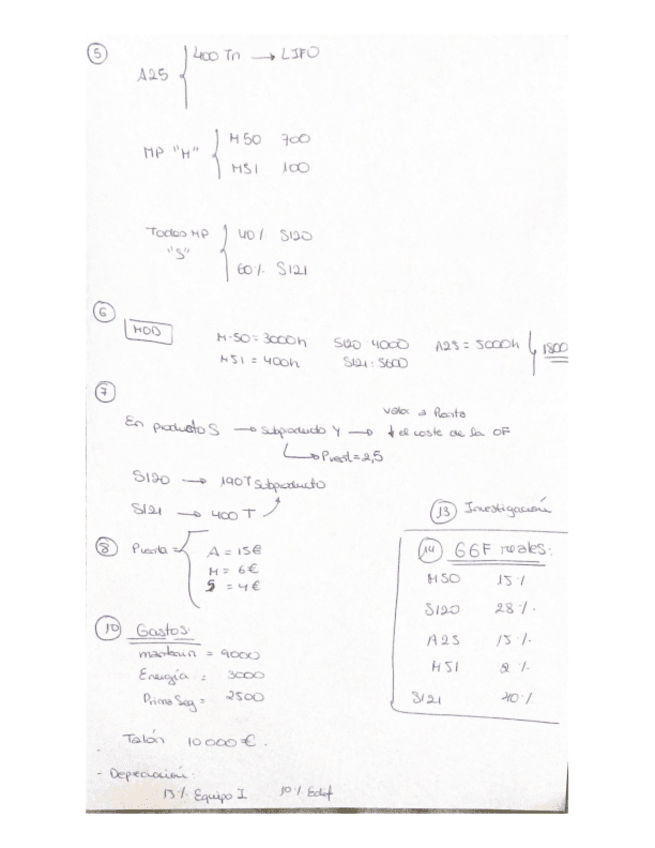 ⑤
A25 { 400 Tn → LIFO
MP "M" { M50 700
M51 100
Todas MP "S" { 40% S120
60% S121
⑥
MOD
M-50 = 3000h S120: 4000 A25 = 5000h } 1800
M51 = 400h S121: 5600
⑦
Valor a Pronto
En producto S → Subproducto Y → ↓ el coste de la OF
→ Prest = 2,5
S120 → 190T Subproducto
S121 → 400 T
⑬ Investigación
⑧ Puerta = { A = 15€
M = 6€
S = 4€
⑭ GGF reales:
M50 15%
S120 28%
A25 15%
M51 2%
S121 40%
⑩ Gastos:
= 9000
Energía = 3000
Prima Seg = 2500
Talón 10000€.
- Depreciación:
13% Equipo I 10% Edif